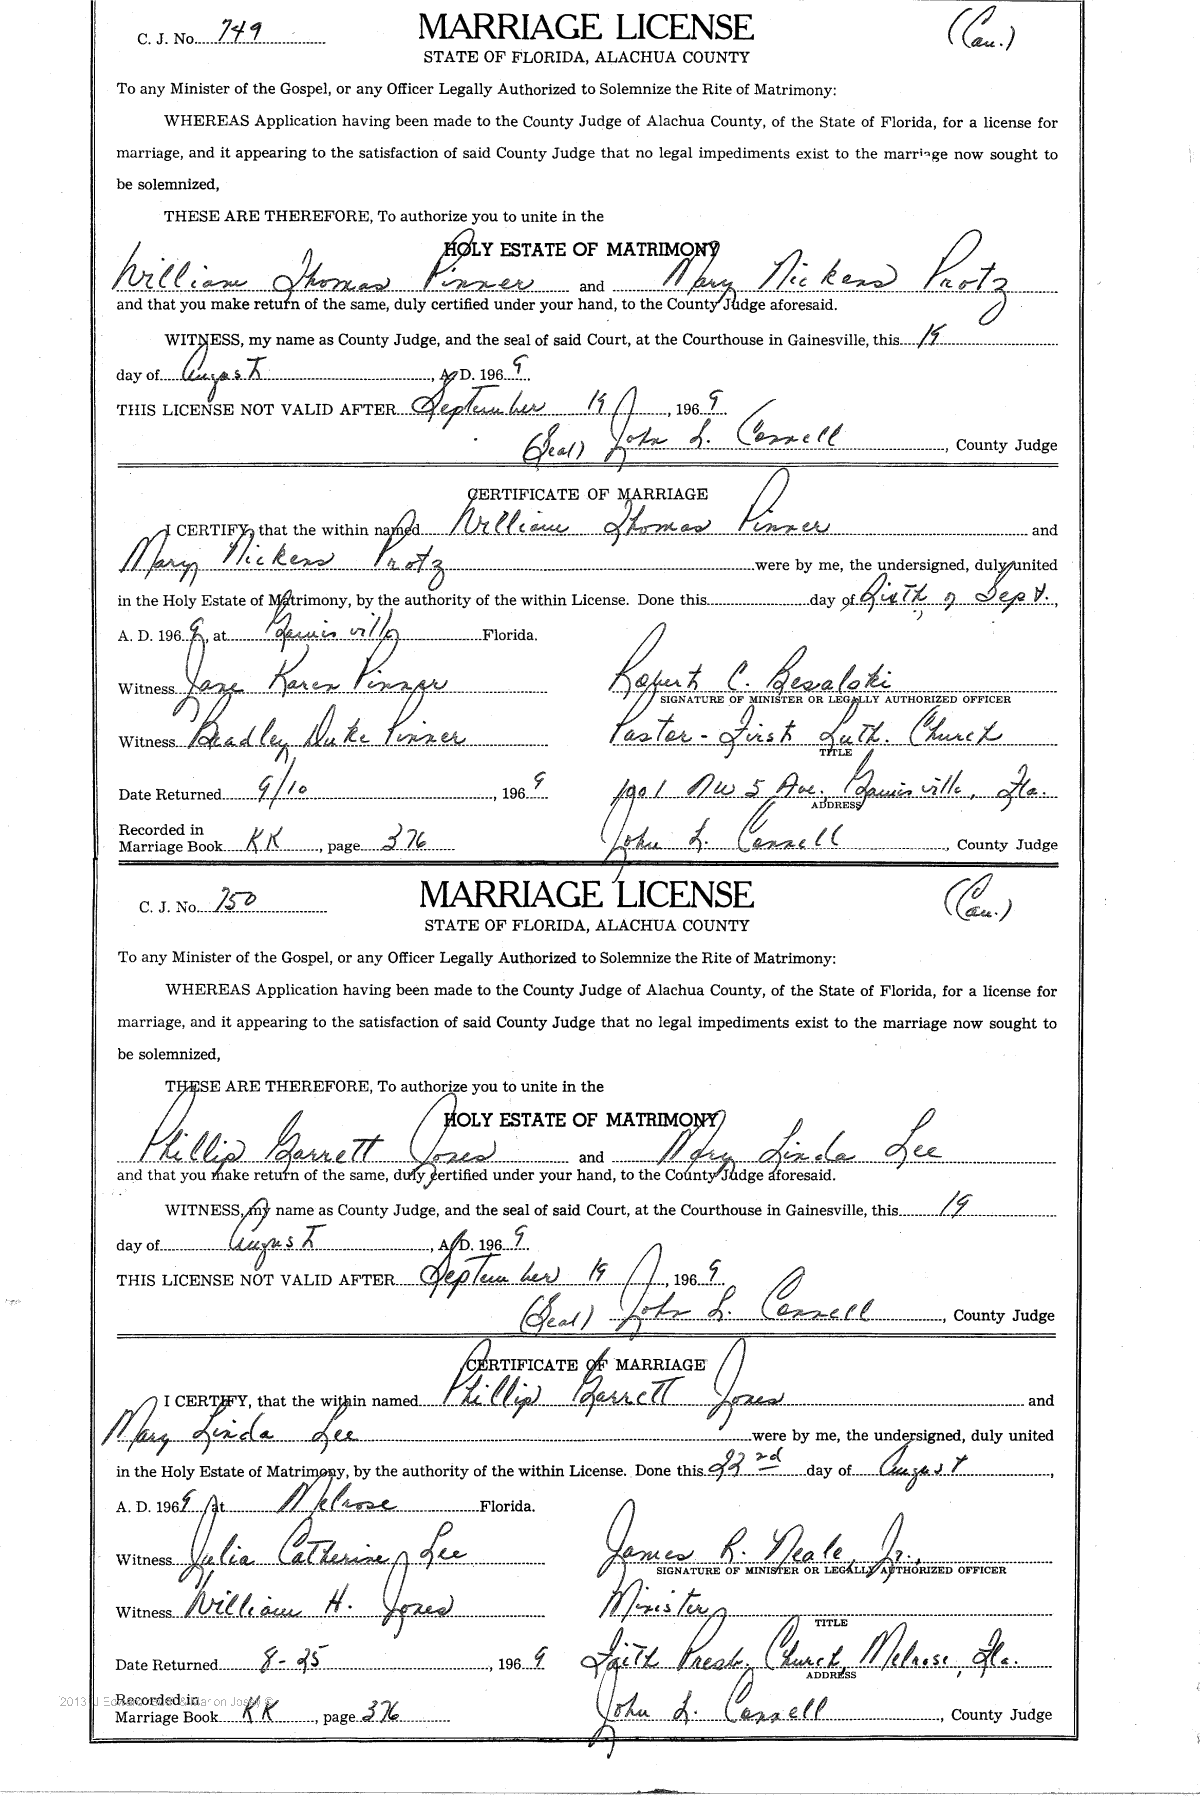 C. J. No. 749
MARRIAGE LICENSE
(Cau.)
STATE OF FLORIDA, ALACHUA COUNTY
To any Minister of the Gospel, or any Officer Legally Authorized to Solemnize the Rite of Matrimony:
WHEREAS Application having been made to the County Judge of Alachua County, of the State of Florida, for a license for
marriage, and it appearing to the satisfaction of said County Judge that no legal impediments exist to the marriage now sought to
be solemnized,
THESE ARE THEREFORE, To authorize you to unite in the
HOLY ESTATE OF MATRIMONY
William Thomas Pinner and Mary Nickens Protz
and that you make return of the same, duly certified under your hand, to the County Judge aforesaid.
WITNESS, my name as County Judge, and the seal of said Court, at the Courthouse in Gainesville, this 19
day of August, A. D. 1969.
THIS LICENSE NOT VALID AFTER September 19, 1969
(Seal) John L. Connell, County Judge
CERTIFICATE OF MARRIAGE
I CERTIFY, that the within named William Thomas Pinner and
Mary Nickens Protz were by me, the undersigned, duly united
in the Holy Estate of Matrimony, by the authority of the within License. Done this day of Sixth of Sept.,
A. D. 1969, at Gainisville Florida.
Witness Jane Karen Pinner Robert C. Besalski
SIGNATURE OF MINISTER OR LEGALLY AUTHORIZED OFFICER
Witness Bradley Duke Pinner Pastor - First Luth. Church
TITLE
Date Returned 9/10, 1969 1901 NW 5 Ave. Gainisville, Fla.
ADDRESS
Recorded in
Marriage Book KK, page 376 John L. Connell, County Judge
C. J. No. 750
MARRIAGE LICENSE
(Cau.)
STATE OF FLORIDA, ALACHUA COUNTY
To any Minister of the Gospel, or any Officer Legally Authorized to Solemnize the Rite of Matrimony:
WHEREAS Application having been made to the County Judge of Alachua County, of the State of Florida, for a license for
marriage, and it appearing to the satisfaction of said County Judge that no legal impediments exist to the marriage now sought to
be solemnized,
THESE ARE THEREFORE, To authorize you to unite in the
HOLY ESTATE OF MATRIMONY
Phillip Garrett Jones and Mary Linda Lee
and that you make return of the same, duly certified under your hand, to the County Judge aforesaid.
WITNESS, my name as County Judge, and the seal of said Court, at the Courthouse in Gainesville, this 19
day of August, A. D. 1969.
THIS LICENSE NOT VALID AFTER September 19, 1969
(Seal) John L. Connell, County Judge
CERTIFICATE OF MARRIAGE
I CERTIFY, that the within named Phillip Garrett Jones and
Mary Linda Lee were by me, the undersigned, duly united
in the Holy Estate of Matrimony, by the authority of the within License. Done this 22nd day of August,
A. D. 1969 at Melrose Florida.
Witness Julia Catherine Lee James R. Neale, Jr.,
SIGNATURE OF MINISTER OR LEGALLY AUTHORIZED OFFICER
Witness William H. Jones Minister
TITLE
Date Returned 8-25, 1969 Faith Presb. Church, Melrose, Fla.
ADDRESS
Recorded in
Marriage Book KK, page 376 John L. Connell, County Judge
2013